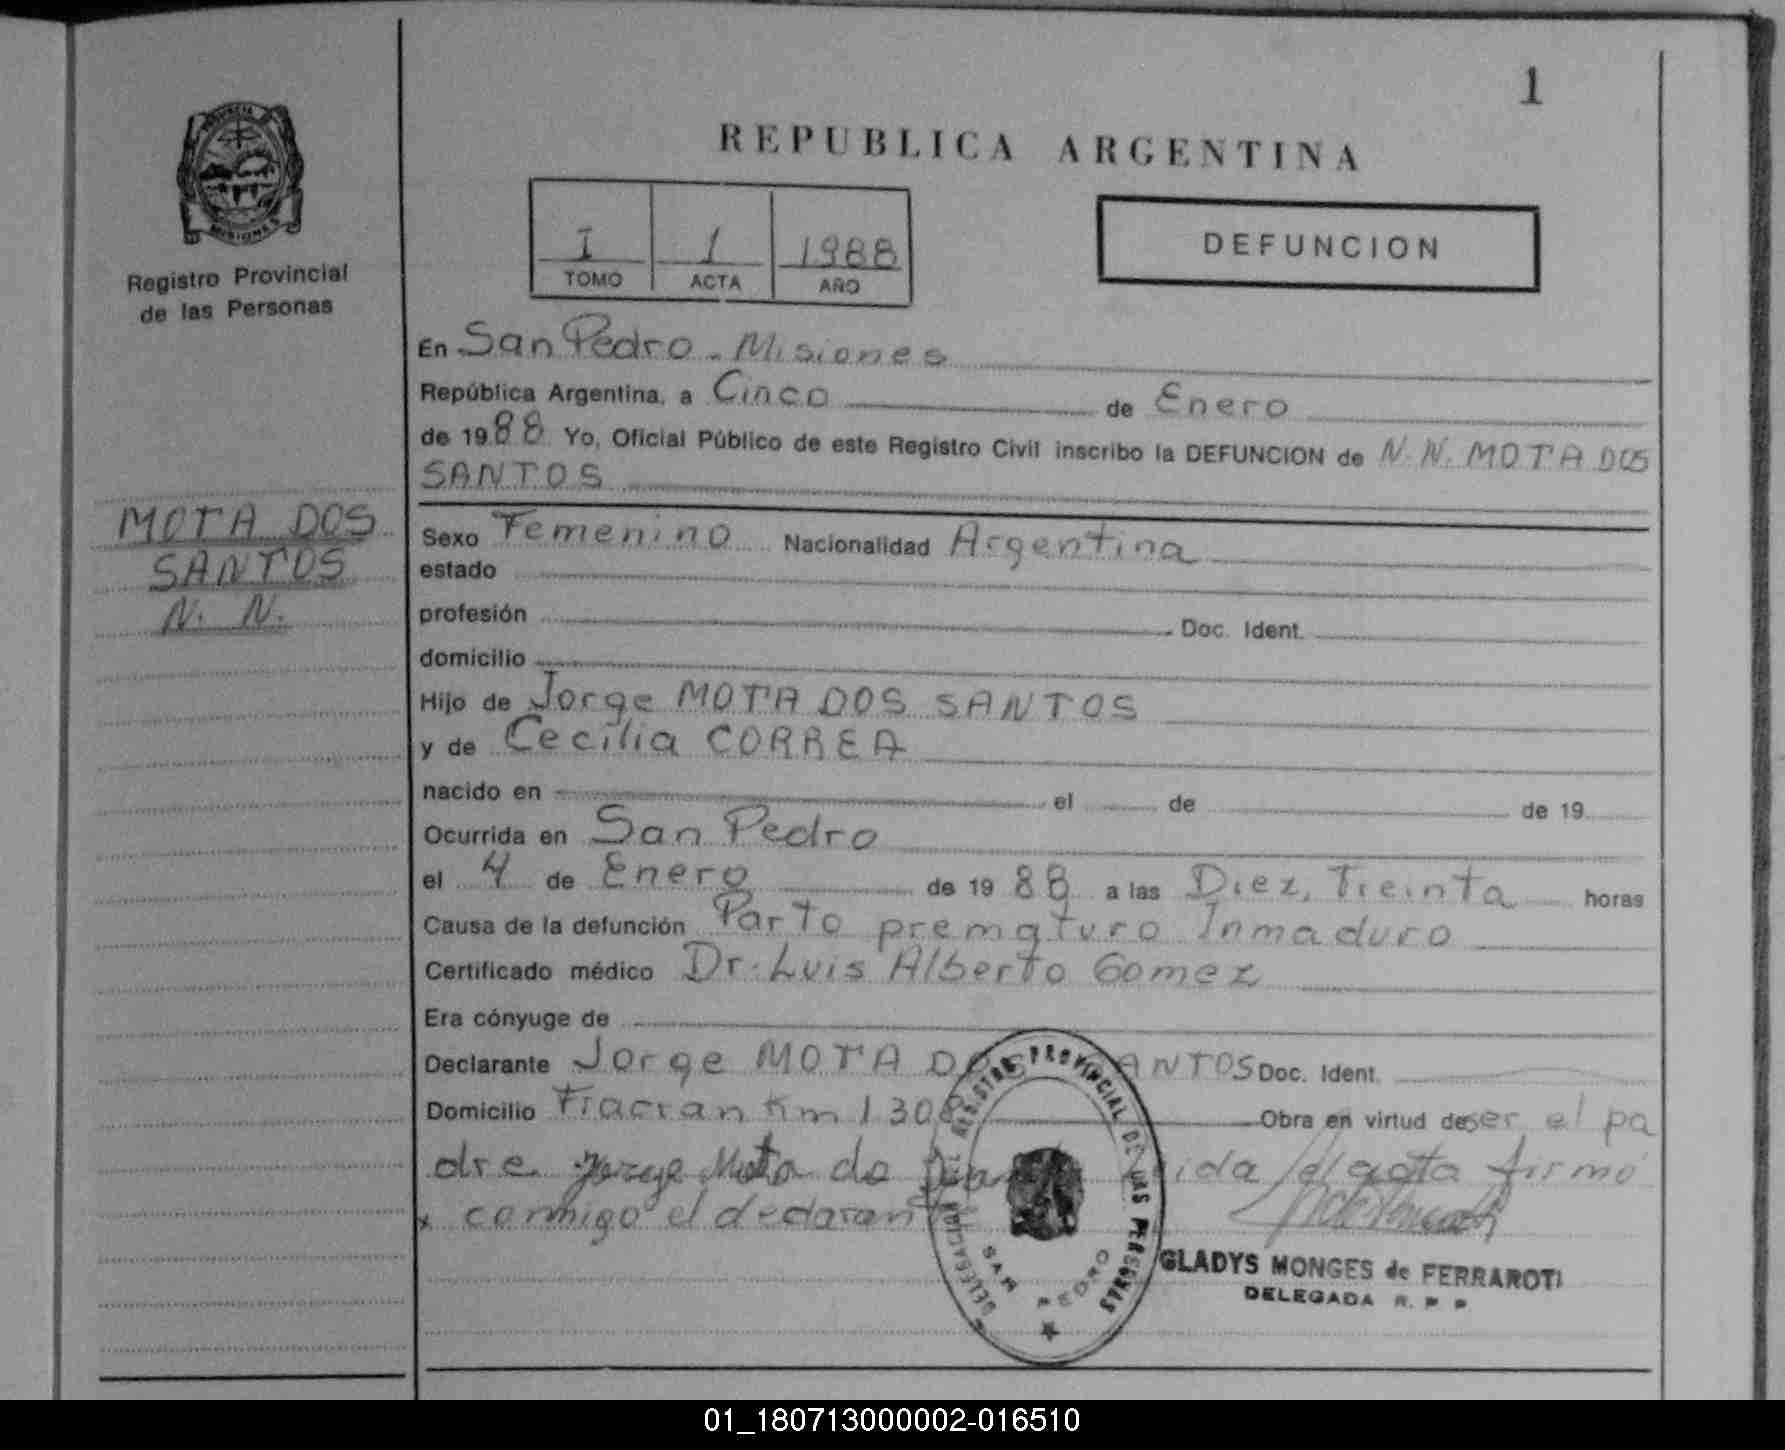 1
PROVINCIA DE
MISIONES
Registro Provincial
de las Personas
REPUBLICA ARGENTINA
I 1 1988
TOMO ACTA AÑO
DEFUNCION
En San Pedro - Misiones
República Argentina, a Cinco de Enero
de 1988 Yo, Oficial Público de este Registro Civil inscribo la DEFUNCION de N. N. MOTA DOS
SANTOS
MOTA DOS
SANTOS
N. N.
Sexo Femenino Nacionalidad Argentina
estado
profesión Doc. Ident.
domicilio
Hijo de Jorge MOTA DOS SANTOS
y de Cecilia CORREA
nacido en el de de 19
Ocurrida en San Pedro
el 4 de Enero de 1988 a las Diez, Treinta horas
Causa de la defunción Parto prematuro Inmaduro
Certificado médico Dr. Luis Alberto Gomez
Era cónyuge de
Declarante Jorge MOTA DOS SANTOS Doc. Ident.
Domicilio Fracran Km 1308 Obra en virtud de ser el pa
dre Jorge Mota do el acta firmó
conmigo el declarant
DELEGACION REGISTRO PROVINCIAL DE LAS PERSONAS
SAN PEDRO
GLADYS MONGES de FERRAROTI
DELEGADA R. P. P
01_180713000002-016510